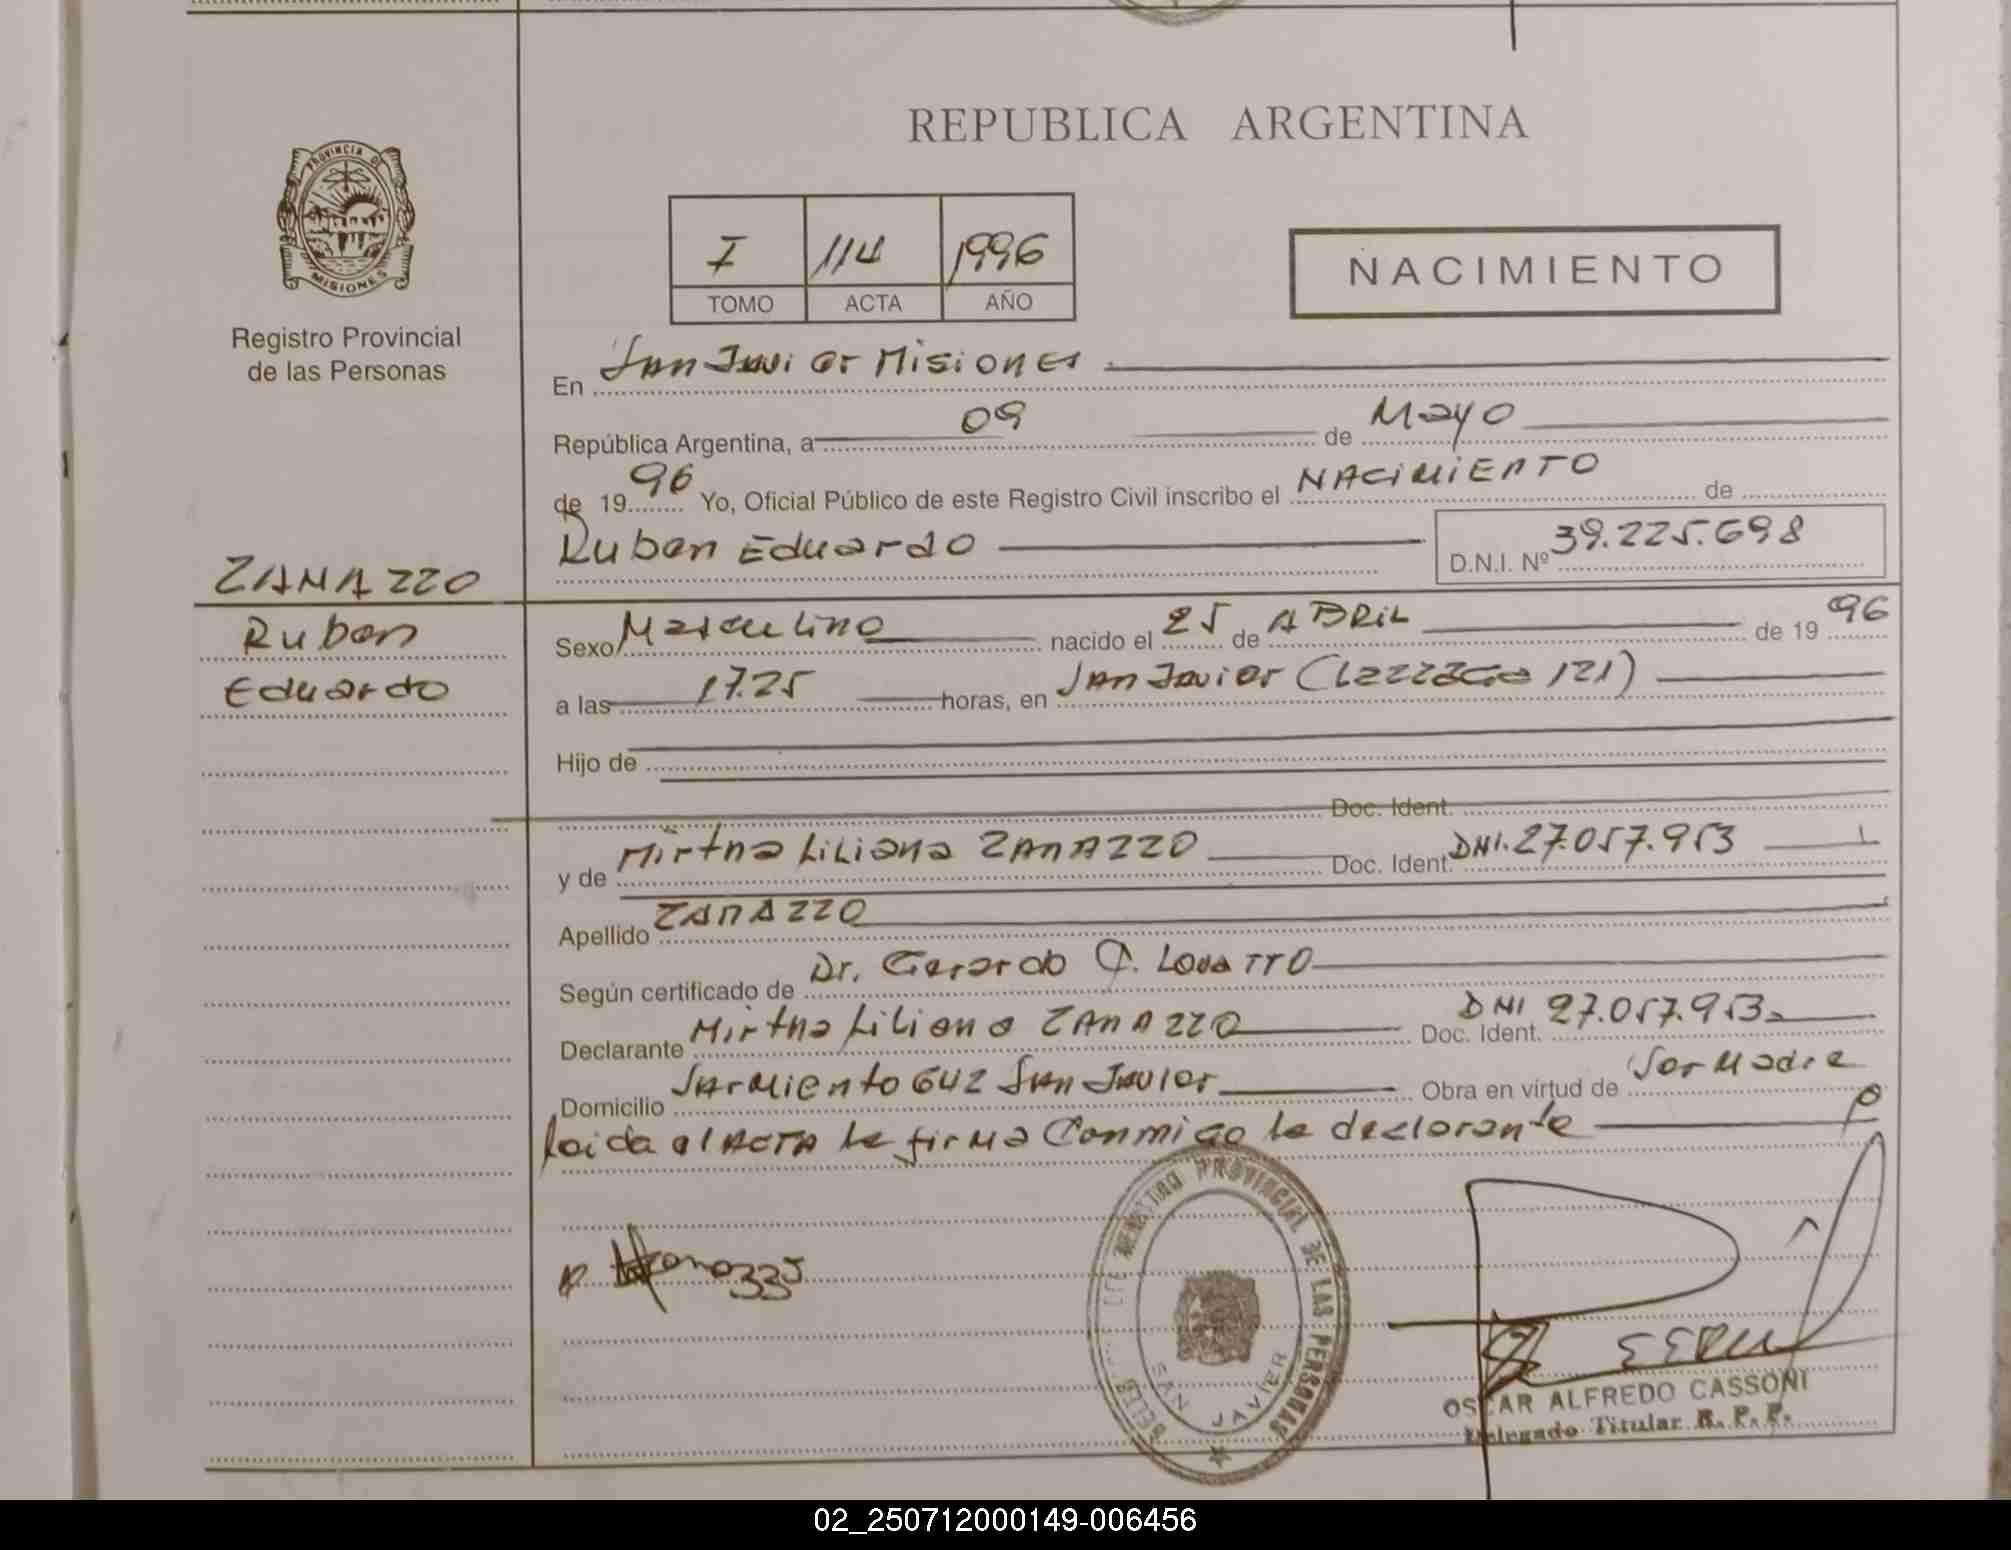 REPUBLICA ARGENTINA
PROVINCIA DE
MISIONES
Registro Provincial
de las Personas
I 114 1996
TOMO ACTA AÑO
NACIMIENTO
En San Javier Misiones
República Argentina, a 09 de Mayo
de 1996 Yo, Oficial Público de este Registro Civil inscribo el NACIMIENTO de
Ruben Eduardo D.N.I. Nº 39.225.698
ZANAZZO
Ruben
Eduardo
Sexo Masculino nacido el 25 de ABRIL de 1996
a las 17.25 horas, en San Javier ( 121)
Hijo de
Doc. Ident.
y de Mirtha Liliana ZANAZZO Doc. Ident. DNI. 27.057.953
Apellido ZANAZZO
Según certificado de Dr. Gerardo Lovatto
Declarante Mirtha Liliana ZANAZZO Doc. Ident. DNI 27.057.953
Domicilio Sarmiento 642 San Javier Obra en virtud de Ser Madre
Leida el ACTA la firma Conmigo la declarante
REGISTRO PROVINCIAL DE LAS PERSONAS
SAN JAVIER
OSCAR ALFREDO CASSONI
Delegado Titular R. P. P.
02_250712000149-006456